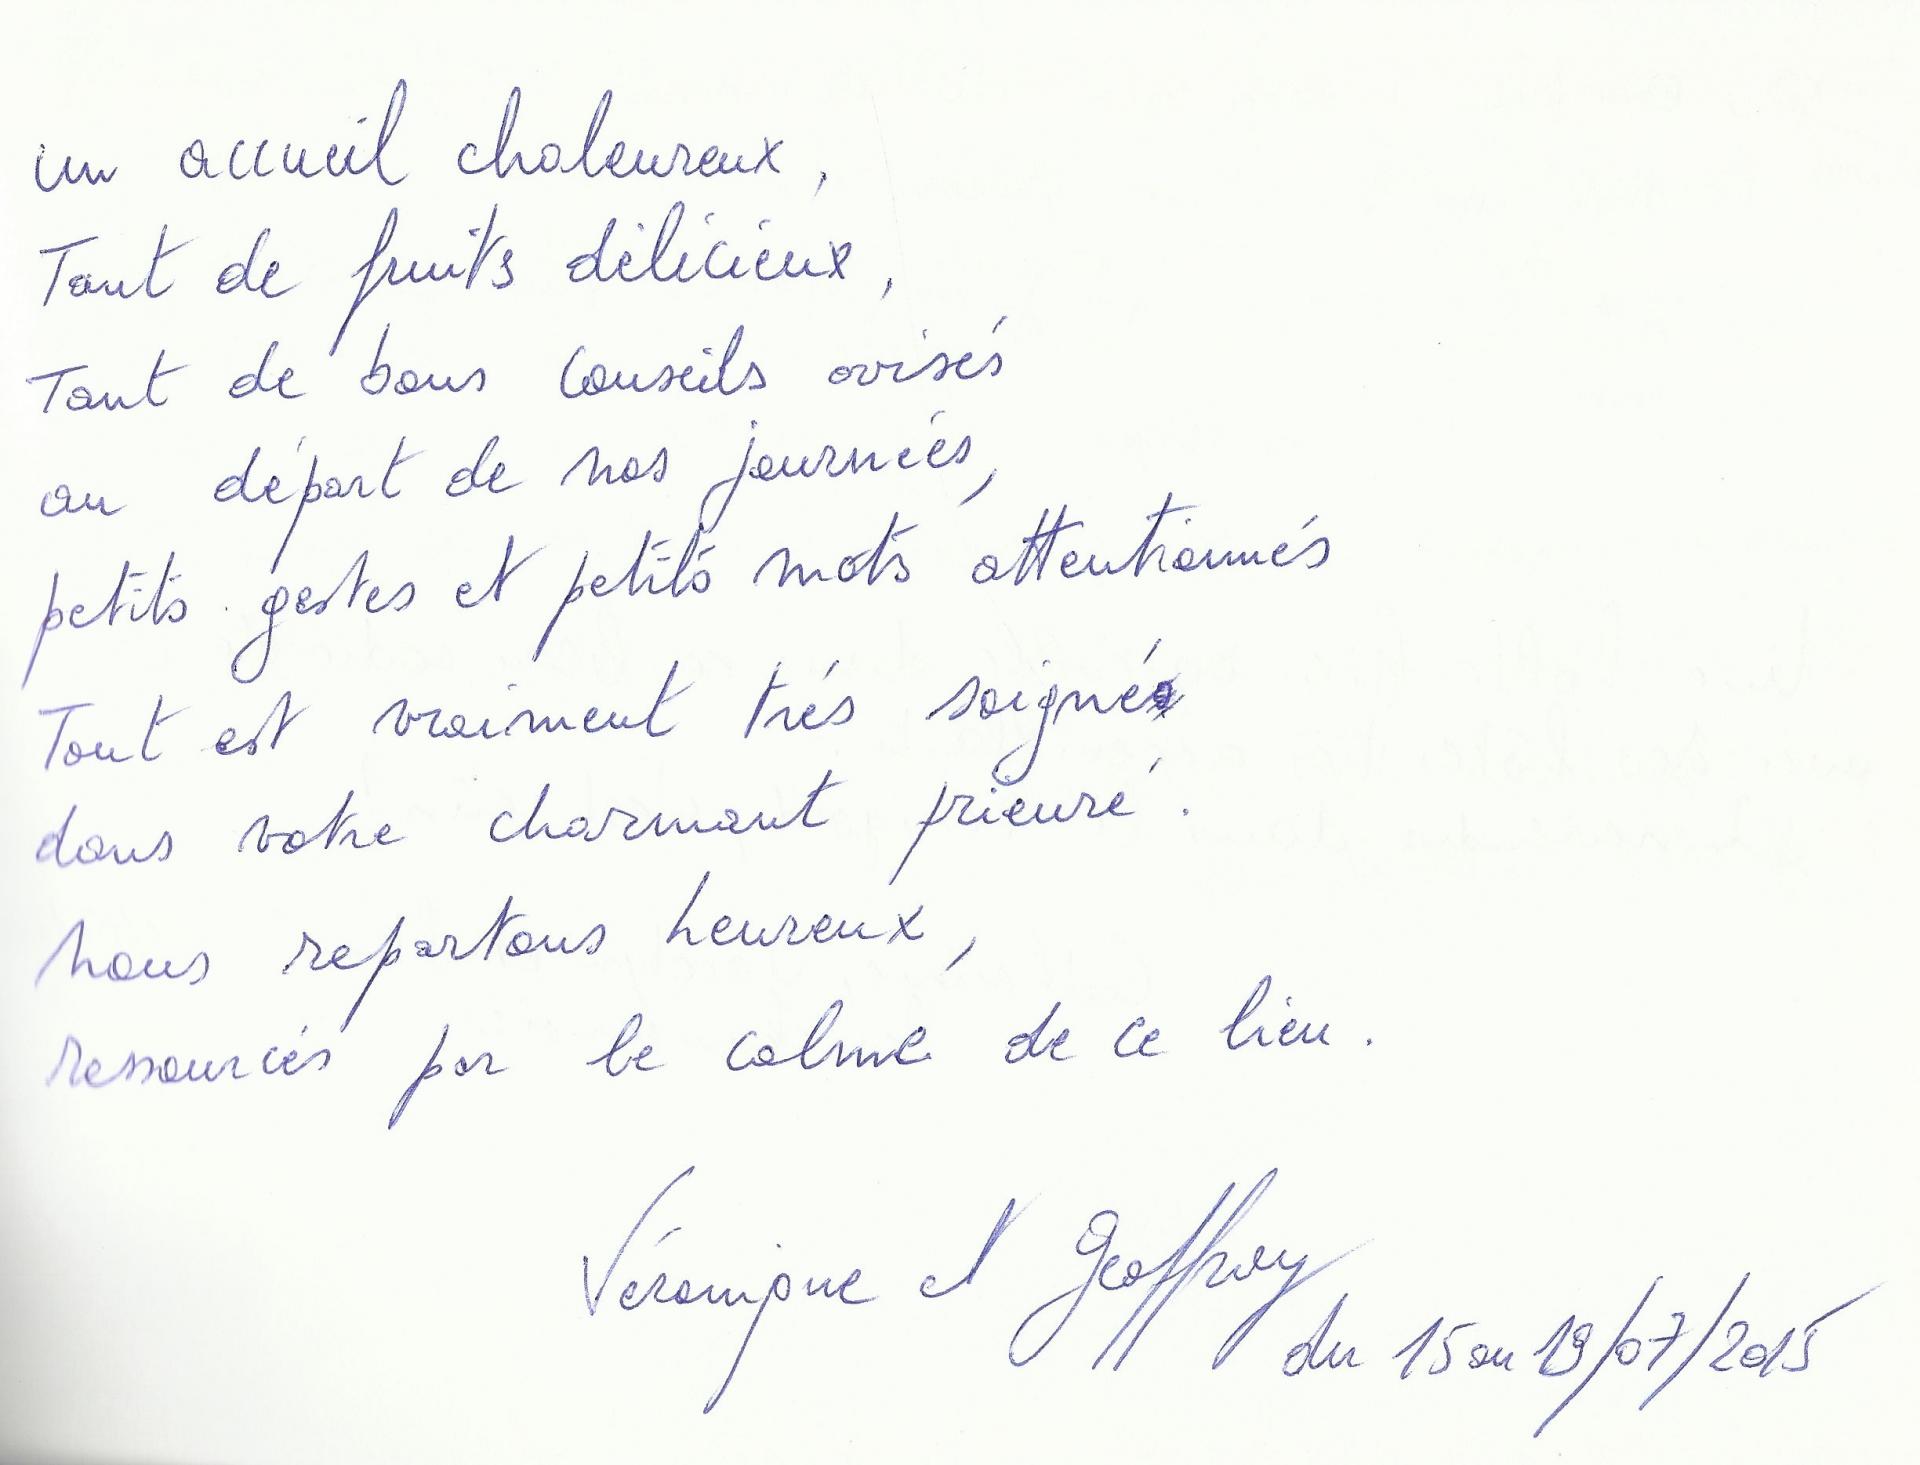 un accueil chaleureux,
Tant de fruits délicieux,
Tant de bons conseils avisés
au départ de nos journées,
petits gestes et petits mots attentionnés
Tout est vraiment trés soigné
dans votre charmant prieuré.
nous repartons heureux,
ressourcés par le calme de ce lieu.
Véronique et Geoffroy
du 15 au 19/07/2015